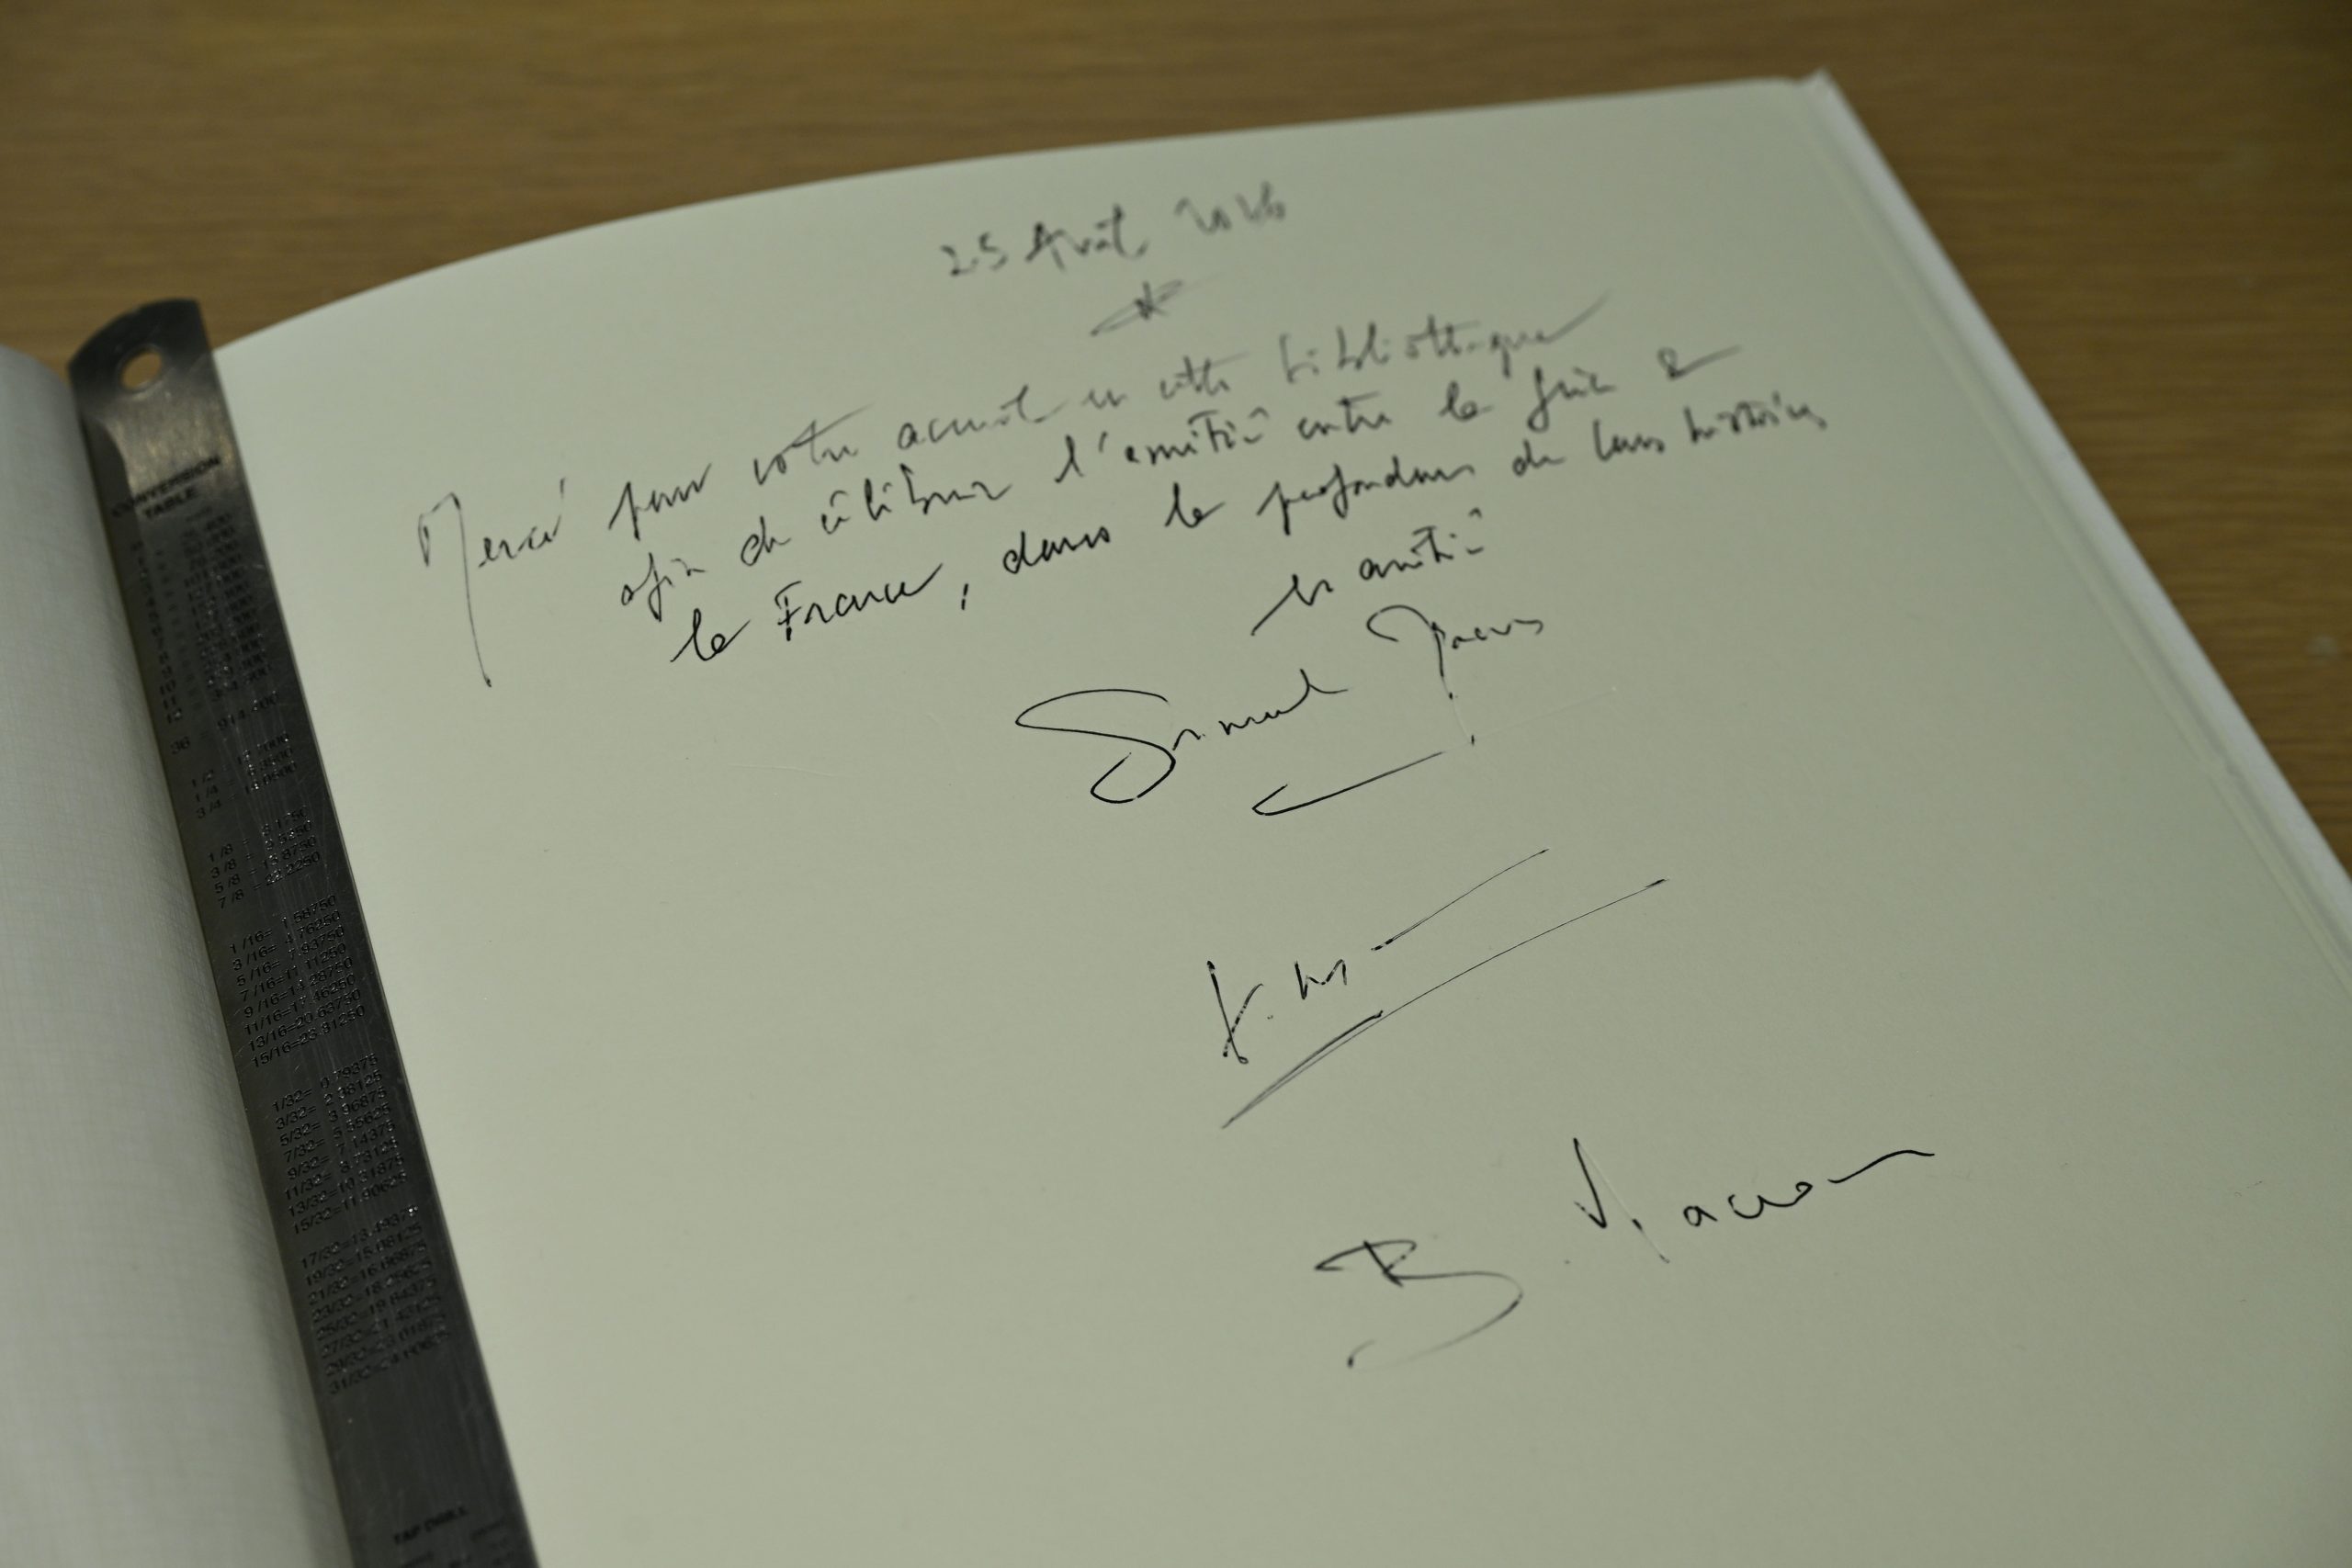 25 Avril 2026
Merci pour votre accueil en cette bibliothèque
afin de célébrer l'amitié entre la Grèce &
la France, dans la profondeur de leurs histoires
en amitié
K. M
B. Macron
CONVERSION
TABLE
36 914.400
1/2
1/4
3/4
1/8 =
3/8 =
5/8 =
7/8 = 22.2250
1/16= 1.58750
3/16= 4.76250
5/16= 7.93750
7/16=11.11250
9/16=14.28750
11/16=17.46250
13/16=20.63750
15/16=23.81250
1/32= 0.79375
3/32= 2.38125
5/32= 3.96875
7/32= 5.55625
9/32= 7.14375
11/32= 8.73125
13/32=10.31875
15/32=11.90625
17/32=13.49375
19/32=15.08125
21/32=16.66875
23/32=18.25625
25/32=19.84375
27/32=21.43125
29/32=23.01875
31/32=24.60625
TAP DRILL